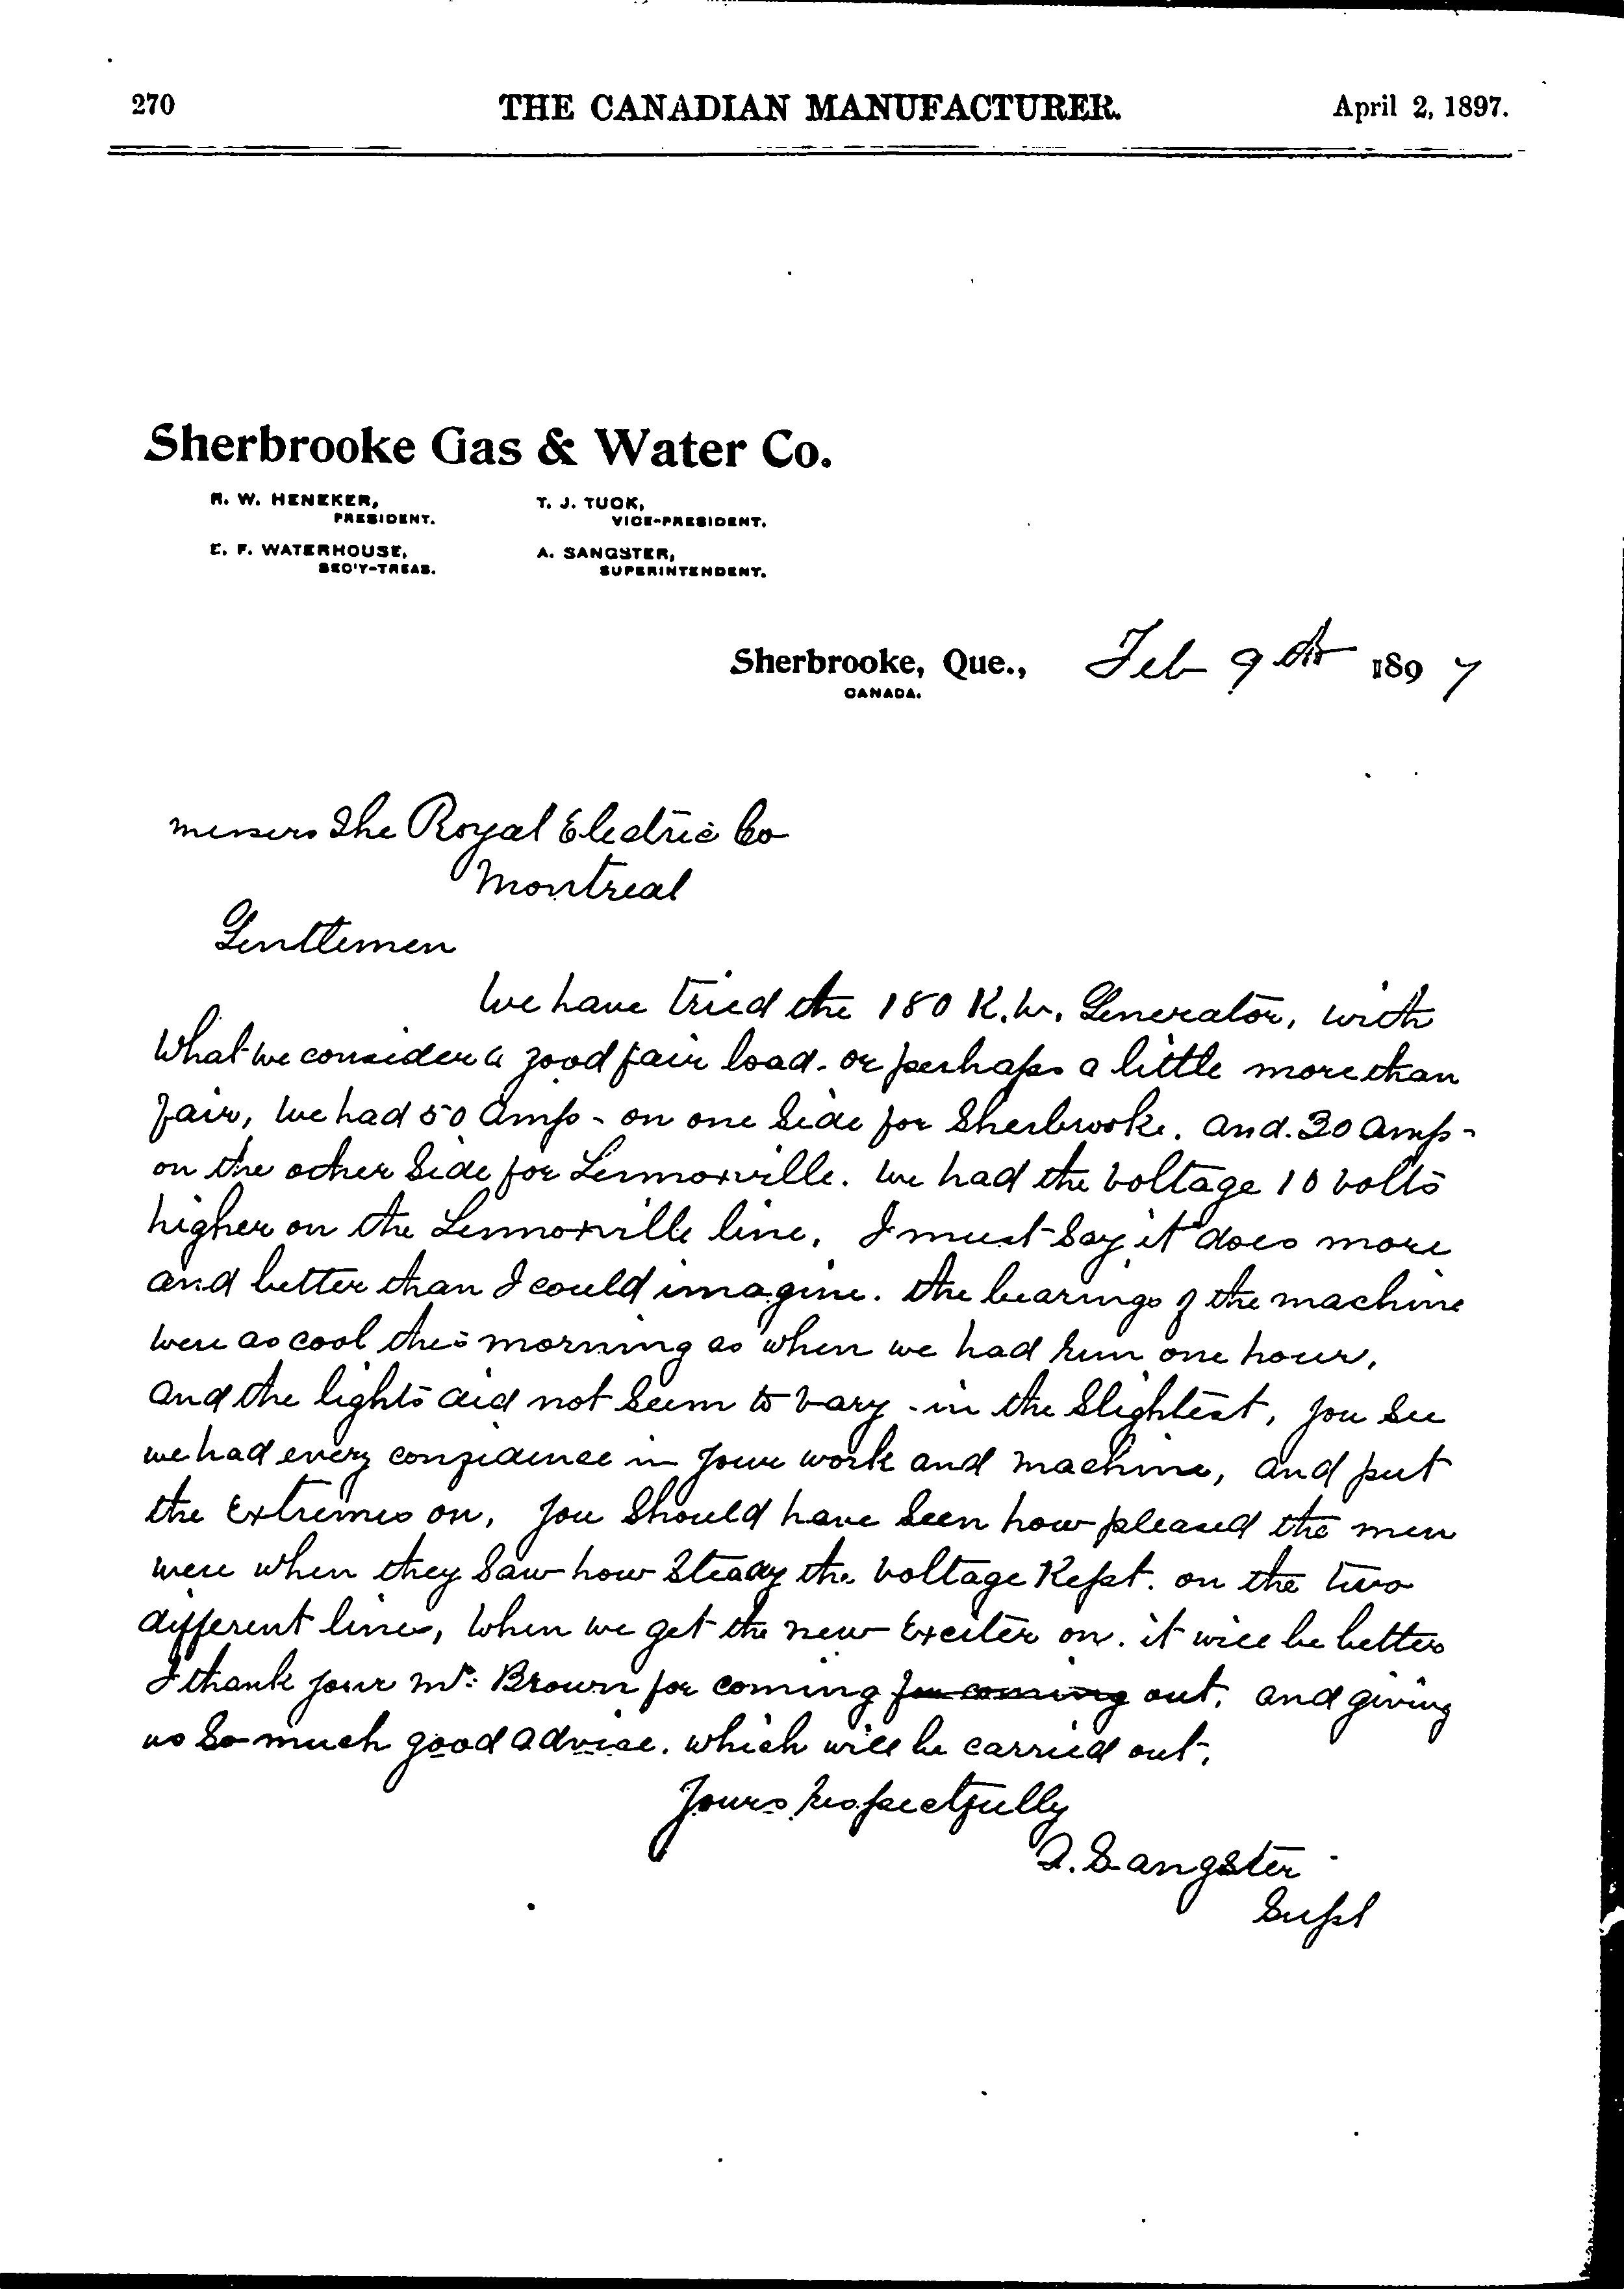 270 THE CANADIAN MANUFACTURER. April 2, 1897.
Sherbrooke Gas & Water Co.
R. W. HENEKER, T. J. TUCK,
PRESIDENT. VICE-PRESIDENT.
E. F. WATERHOUSE, A. SANGSTER,
SEC'Y-TREAS. SUPERINTENDENT.
Sherbrooke, Que., Feb 9th 1897
CANADA.
messers The Royal Electric Co
Montreal
Gentlemen
We have tried the 180 K.W. Generator, with
What we consider a good fair load - or perhaps a little more than
fair, We had 50 Amp - on one Side for Sherbrooke. And. 30 amp -
on the other Side for Lennoxville. We had the Voltage 10 Volts
higher on the Lennoxville line. I must Say it does more
and better than I could imagine. The bearings of the machine
were as cool this morning as when we had run one hour.
And the lights did not Seem to Vary - in the Slightest, You See
we had every confidence in Your work and machine, and put
the Extremes on, You Should have Seen how pleased the men
were when they Saw how Steady the Voltage Kept. on the two
different lines, When we get the new Exciter on. it will be better
I thank your Mr: Brown for coming for coming out. and giving
us So much good advice. which will be carried out.
Yours Respectfully
A. Sangster
Supt